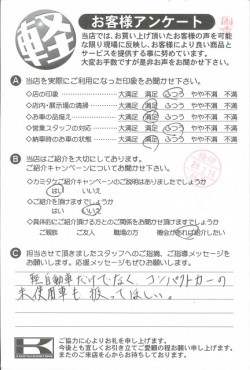 軽
お客様アンケート
当店では、お買い上げ頂いたお客様の声を可能
な限り現場に反映し、お客様により良い商品と
サービスを提供する事に努めています。
大変お手数ですが是非お声をお聞かせ下さい。
A 当店を実際にご利用になった印象をお聞かせ下さい。
◇店の印象 大満足 満足 ふつう やや不満 不満
◇店内・展示場の清掃 大満足 満足 ふつう やや不満 不満
◇お車の品揃え 大満足 満足 ふつう やや不満 不満
◇営業スタッフの対応 大満足 満足 ふつう やや不満 不満
◇納車時のお車の状態 大満足 満足 ふつう やや不満 不満
B 当店はご紹介を大切にしております。
ご紹介キャンペーンについてお聞かせ下さい。
◇カミタケご紹介キャンペーンのご説明はありましたでしょうか
はい いいえ
◇ご紹介を頂けますでしょうか
はい いいえ
◇具体的にご紹介頂ける方とのご関係をお聞かせ頂けますでしょうか
ご親族 ご友人 職場の方 機会があれば紹介したい
C 担当させて頂きましたスタッフへのご指摘、ご指導メッセージを
お願いします。応援メッセージもぜひお願いします。
軽自動車だけでなく、コンパクトカーの
未使用車も扱ってほしい。
K
ご協力に心よりお礼を申し上げます。
今後とも宜しくお引き立てご愛顧の程お願い申し上げます。
またのご来店を心からお待ちしております。